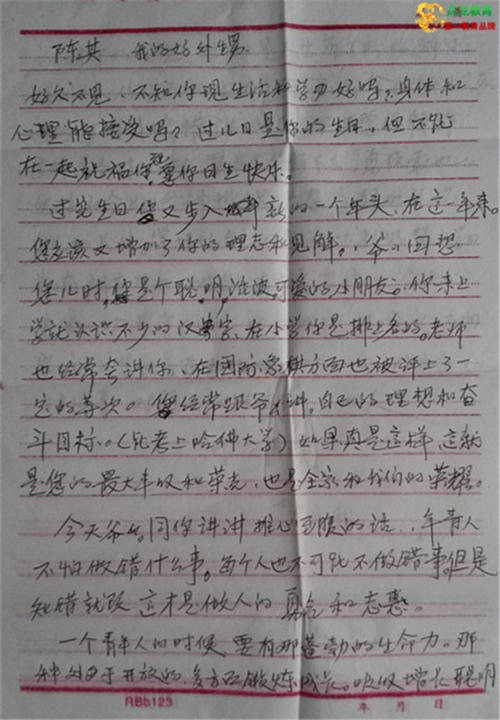 教育
第一教育品牌
陈其 我的好外甥.
好久不见、不知你现生活和学习好吗?身体和
心理能接受吗?过几日是你的生日,但不能
在一起祝福你,愿你日生快乐。
过完生日您又步入新的一个年头,在这一年来。
您应该又增加了你的理念和见解。爷爷回想
您儿时,您是个聪明活泼可爱的小朋友。你未上
学就认识不少的汉字,在小学你是排上名的。老师
也经常夸讲你、在国际象棋方面也被评上了一
定的等次。您经常跟爷爷讲,自己的理想和奋
斗目标。(能考上哈佛大学)如果真是这样,这就
是您的最大丰收和荣光,也是全家和我们的荣耀。
今天爷爷同你讲讲推心至腹的话,年青人
不怕做错什么事。每个人也不可能不做错事。但是
知错就改 这才是做人的 和志
一个青年人的时候,要有那蓬勃的生命力。那
种 开放的,多方面锻炼成长。吸收增长聪明
RBb123
年 月 日